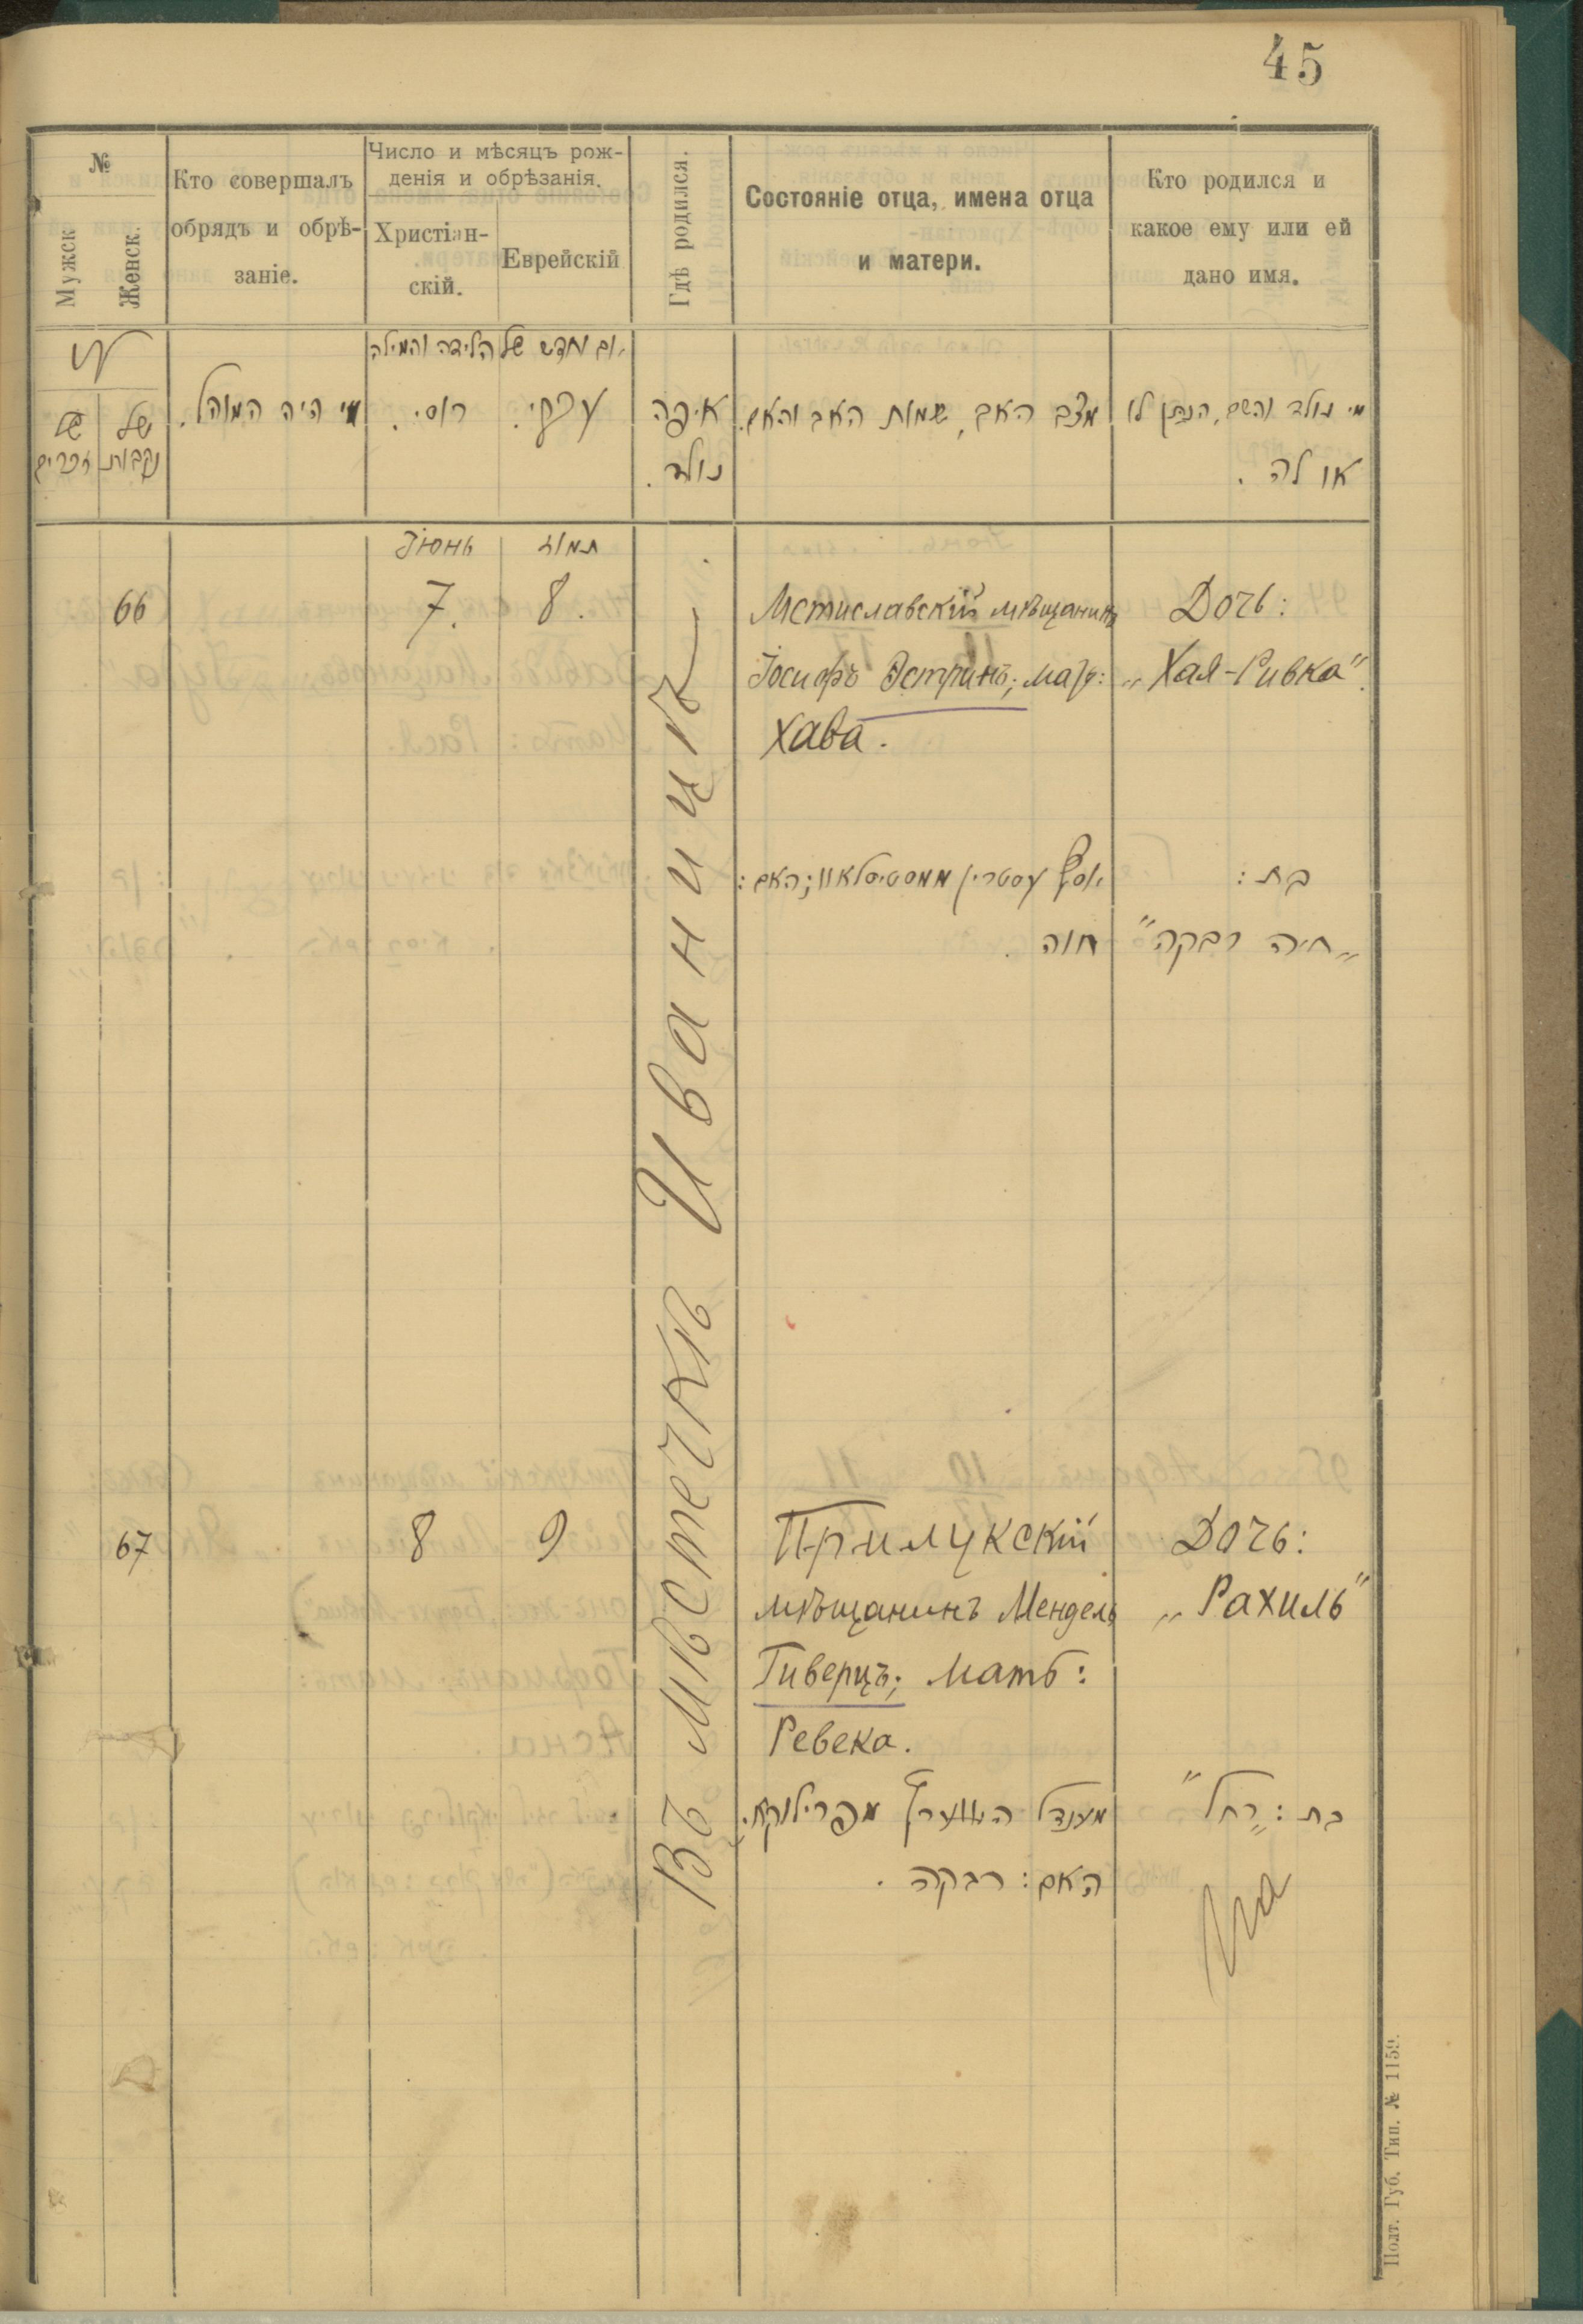 45
№
Мужск
Женск.
Кто совершалъ
обрядъ и обрѣ-
заніе.
Число и мѣсяцъ рож-
денія и обрѣзанія.
Христіан-
скій.
Еврейскій
Гдѣ родился.
Состояніе отца, имена отца
и матери.
Кто родился и
какое ему или ей
дано имя.
יום וחדש של הלידה והמילה
מי נולד והשם הנתן לו
או לה.
מצב האב, שמות האב והאם.
איפה
נולד.
עברי.
רוסי.
מי היה המוהל.
של
נקבות
של
זכרים
Іюнь
תמוז
66
7.
8.
Мстиславскій мѣщанинъ
Іосифъ Эстринъ; мать:
Хава.
Дочь:
„Хая-Ривка“.
יוסף עסטרין ממסטיסלאוו; האם:
חוה.
בת:
„חיה רבקה“
Въ мѣстечкѣ Иваницѣ
67
8
9
Прилукскій
мѣщанинъ Мендель
Гиверцъ; мать:
Ревека.
Дочь:
„Рахиль“
מענדל היווערץ מפרילוקא.
האם: רבקה.
בת: „רחל“
Полт. Губ. Тип. № 1159.